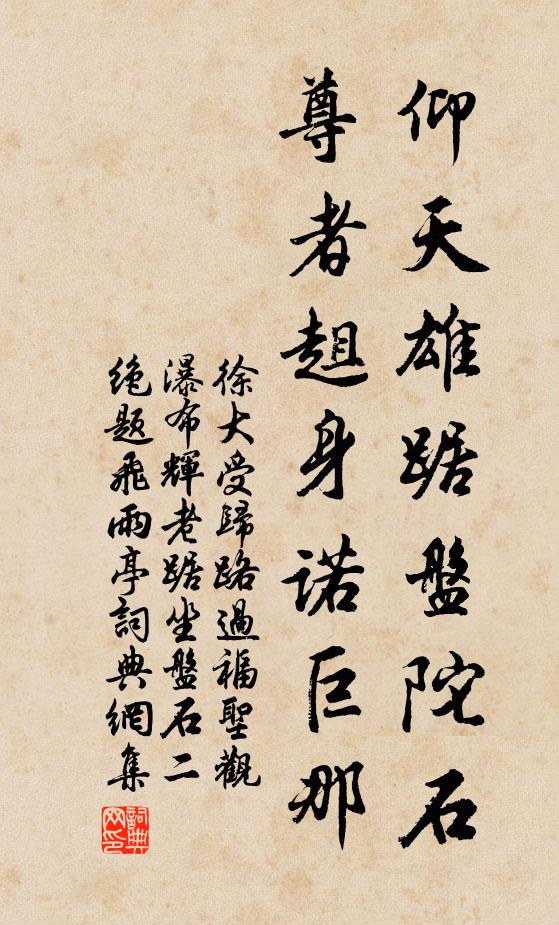 仰天雄踞盤陀石
尊者趄身諾巨那
徐大受歸路過福聖觀
瀑布輝老踞坐盤石二
絶題飛雨亭詞典網集
詞典网印